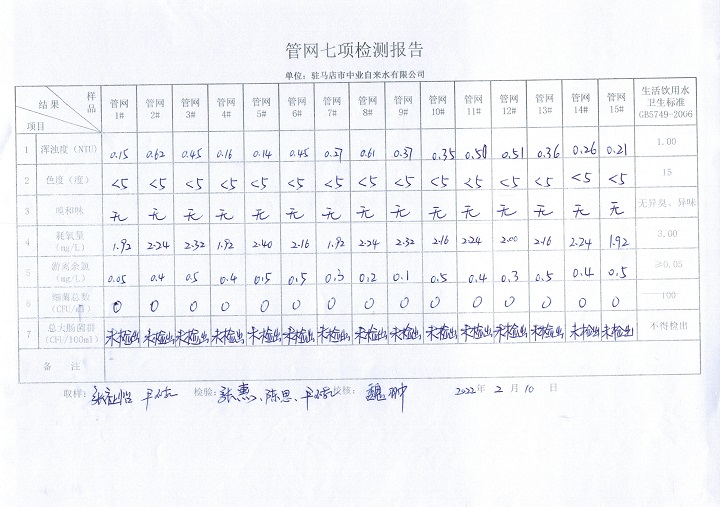 管网七项检测报告
单位：驻马店市中业自来水有限公司
结果 样品 项目 管网1# 管网2# 管网3# 管网4# 管网5# 管网6# 管网7# 管网8# 管网9# 管网10# 管网11# 管网12# 管网13# 管网14# 管网15# 生活饮用水卫生标准GB5749-2006
1 浑浊度（NTU） 0.15 0.62 0.45 0.16 0.14 0.45 0.27 0.61 0.37 0.35 0.50 0.51 0.36 0.26 0.21 1.00
2 色度（度） <5 <5 <5 <5 <5 <5 <5 <5 <5 <5 <5 <5 <5 <5 <5 15
3 嗅和味 无 无 无 无 无 无 无 无 无 无 无 无 无 无 无 无异臭、异味
4 耗氧量（mg/L） 1.92 2.24 2.32 1.92 2.40 2.16 1.92 2.24 2.32 2.16 2.24 2.00 2.16 2.24 1.92 3.00
5 游离余氯（mg/L） 0.05 0.4 0.5 0.4 0.5 0.5 0.3 0.2 0.1 0.5 0.4 0.3 0.5 0.4 0.5 ≥0.05
6 细菌总数（CFU/ml） 0 0 0 0 0 0 0 0 0 0 0 0 0 0 0 100
7 总大肠菌群（CFU/100ml） 未检出 未检出 未检出 未检出 未检出 未检出 未检出 未检出 未检出 未检出 未检出 未检出 未检出 未检出 未检出 不得检出
备 注
取样： 检验：张惠、陈思、 校核： 2022年 2 月 10 日